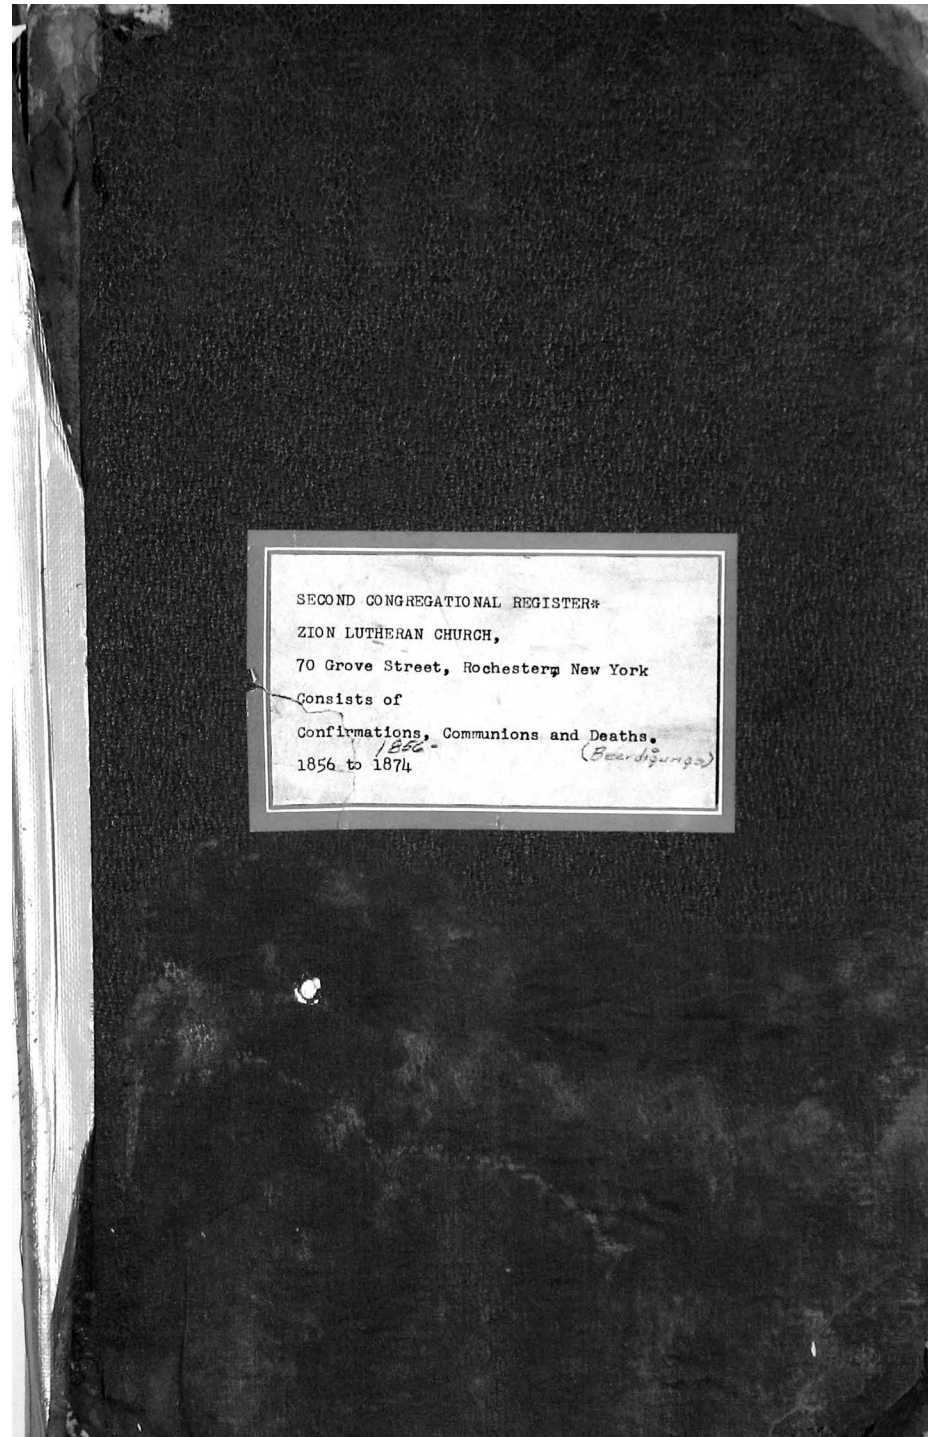 SECOND CONGREGATIONAL REGISTER*
ZION LUTHERAN CHURCH,
70 Grove Street, Rochester, New York
Consists of
Confirmations, Communions and Deaths.
1856 - (Beerdigungs)
1856 to 1874